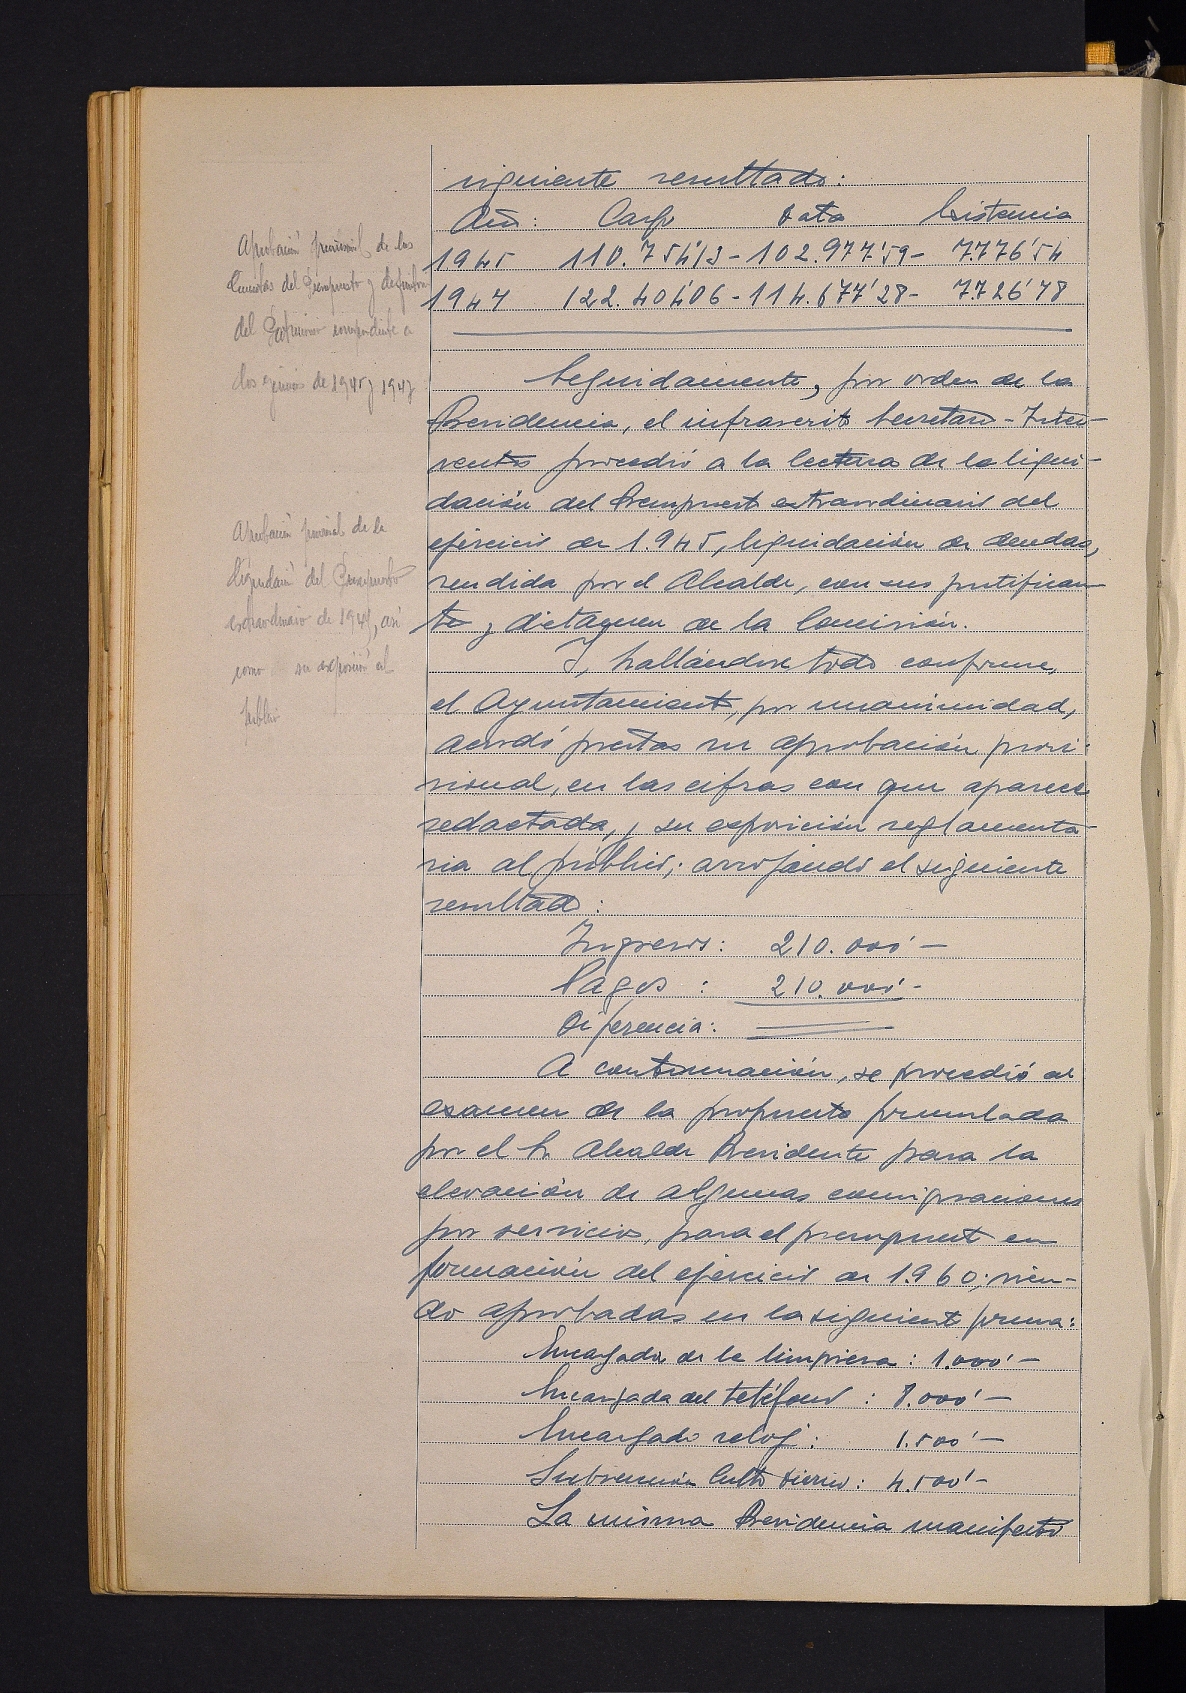 siguiente resultado:
Año: Cargo Data Existencia
1945 110.754'13 - 102.977'59 - 7.776'54
1947 122.404'06 - 114.677'28 - 7.726'78
Aprobación provisional de las
Cuentas del Presupuesto y definitiva
del Patrimonio correspondiente a
los ejercicios de 1945 y 1947
Seguidamente, por orden de la
Presidencia, el infrascrito Secretario-Inter-
ventor procedió a la lectura de la liqui-
dación del Presupuesto extraordinario del
ejercicio de 1.945, liquidación de deudas,
rendida por el Alcalde, con sus justifican-
tes y dictamen de la Comisión.
Aprobación provisional de la
liquidación del Presupuesto
extraordinario de 1945, así
como su exposición al
público
Y, hallándose todo conforme,
el Ayuntamiento, por unanimidad,
acordó prestar su aprobación provi-
sional, en las cifras con que aparece
redactada, y su exposición reglamenta-
ria al público; arrojando el siguiente
resultado:
Ingresos: 210.000'-
Pagos: 210.000'-
Diferencia:
A continuación, se procedió al
examen de la propuesta formulada
por el Sr. Alcalde Presidente para la
elevación de algunas consignaciones
por servicios, para el presupuesto en
formación del ejercicio de 1.960; sien-
do aprobadas en la siguiente forma:
Encargada de la limpieza: 1.000'-
Encargada del teléfono: 8.000'-
Encargado reloj: 1.500'-
Subvención Culto Divino: 4.500'-
La misma Presidencia manifestó